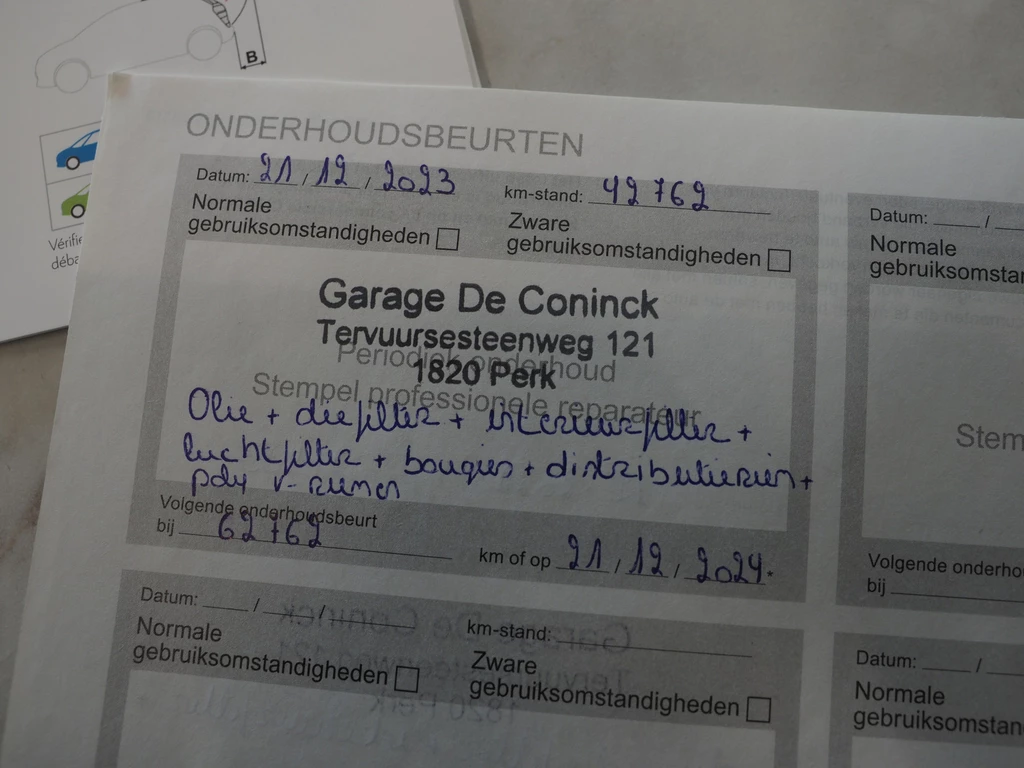 B
Vérifie
déba
ONDERHOUDSBEURTEN
Datum: 21 / 12 / 2023 km-stand: 42762
Normale gebruiksomstandigheden Zware gebruiksomstandigheden
Garage De Coninck
Tervuursesteenweg 121
Periodiek onderhoud
1820 Perk
Stempel professionele reparateur
Olie + oliefilter + interieurfilter +
luchtfilter + bougies + distributieriem +
poly v-riemen
Volgende onderhoudsbeurt
bij 62762 km of op 21 / 12 / 2024.
Datum: / / km-stand:
Normale gebruiksomstandigheden Zware gebruiksomstandigheden
Datum: /
Normale
gebruiksomstan
Stem
Volgende onderho
bij
Datum: /
Normale
gebruiksomstan